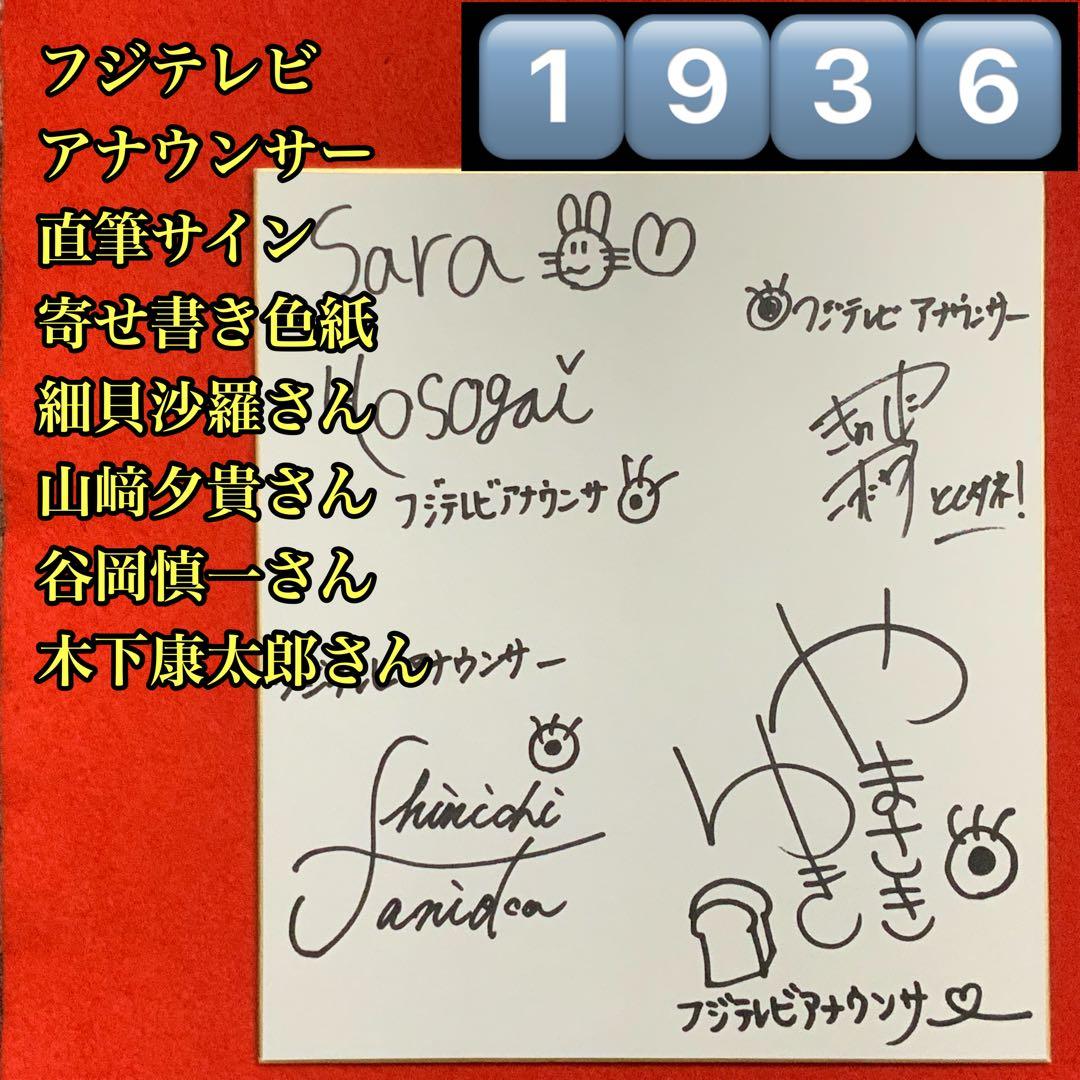 1936
フジテレビ
アナウンサー
直筆サイン
寄せ書き色紙
細貝沙羅さん
山﨑夕貴さん
谷岡慎一さん
木下康太郎さん
Sara
Hosogai
フジテレビアナウンサ
フジテレビ アナウンサー
フジテレビアナウンサー
Shinichi
Tanioka
やまさき
ゆき
フジテレビアナウンサ